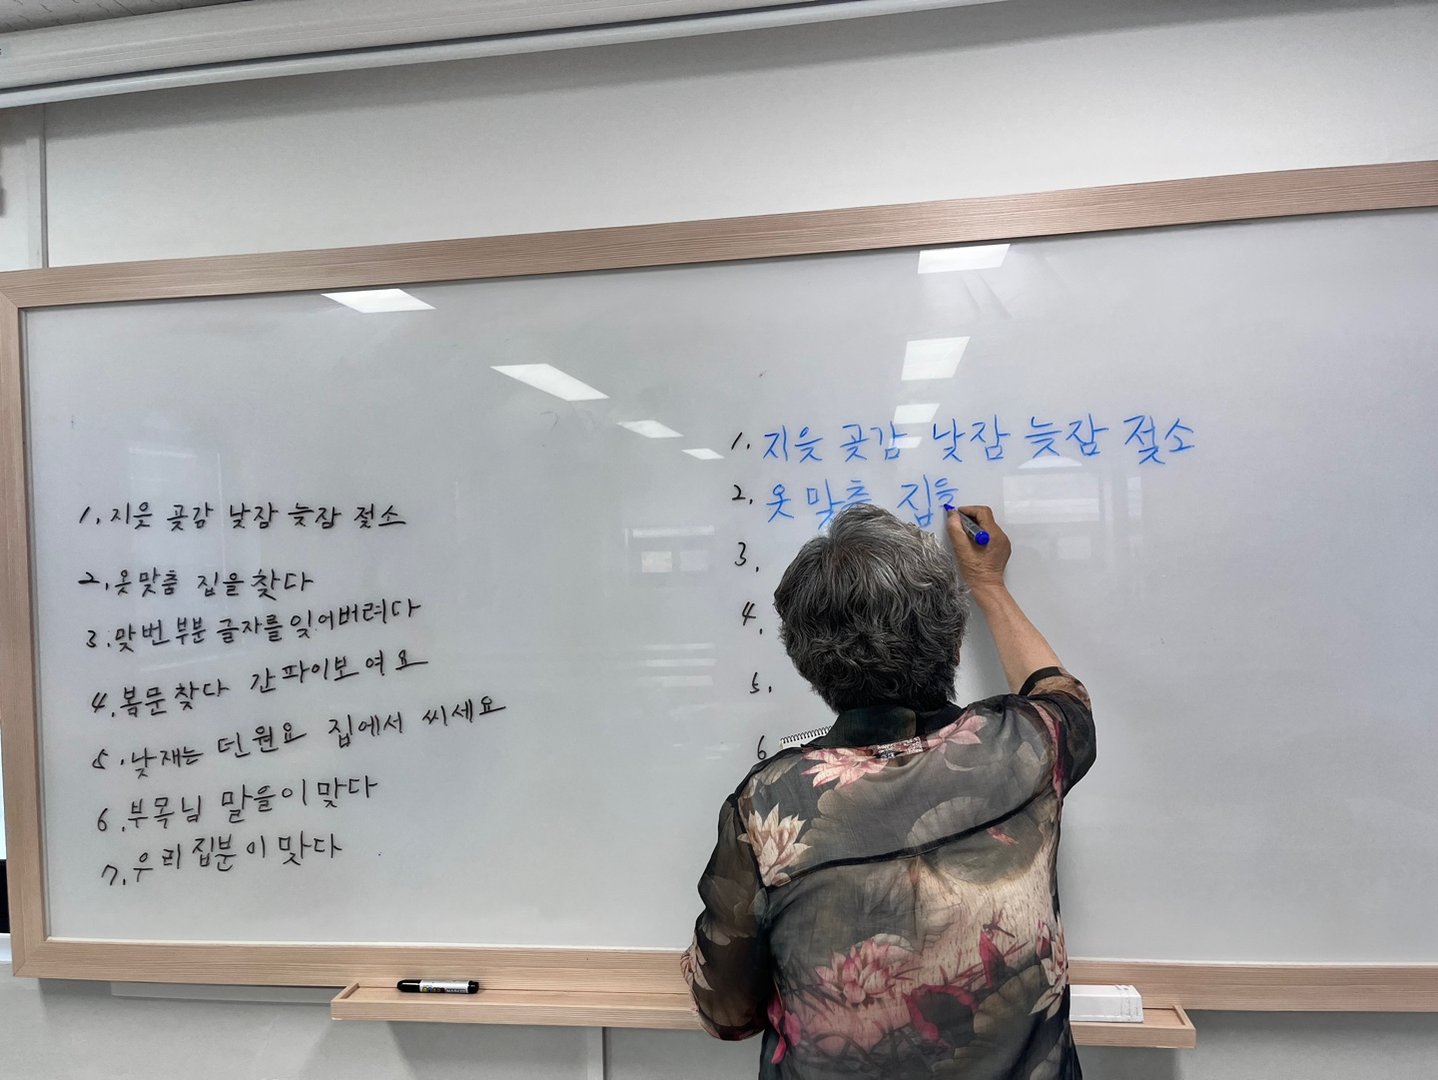 1. 지읏 곶감 낮잠 늦잠 젖소
2. 옷맞춤 집을 찾다
3. 맞번 부분 글자를 잊어버려다
4. 봄문찾다 간파이보여요
5. 낮재는 던원요 집에서 씨세요
6. 부목님 말을이 맞다
7. 우리집분이 맞다
1. 지읏 곶감 낮잠 늦잠 젖소
2. 옷 맞춤 집을
3.
4.
5.
6